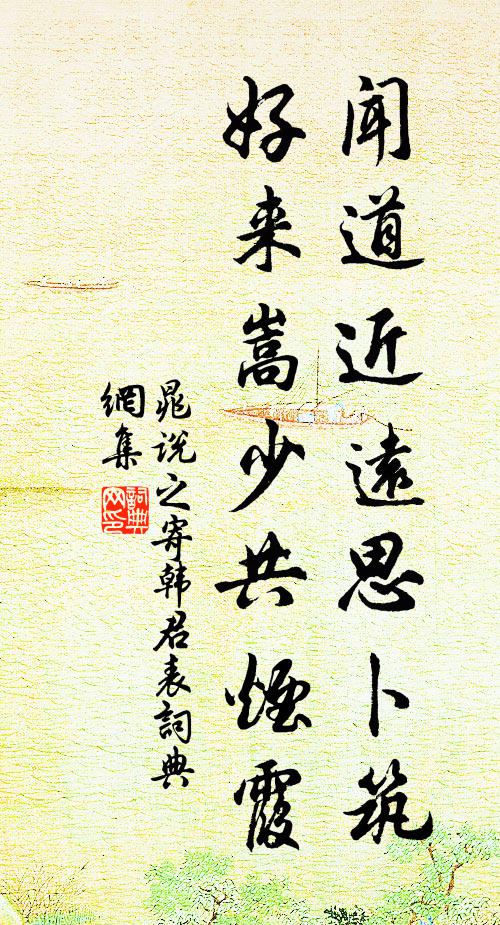 闻道近遠思卜筑
好来嵩少共煙霞
晁说之寄韩君表詞典
網集
詞典网印